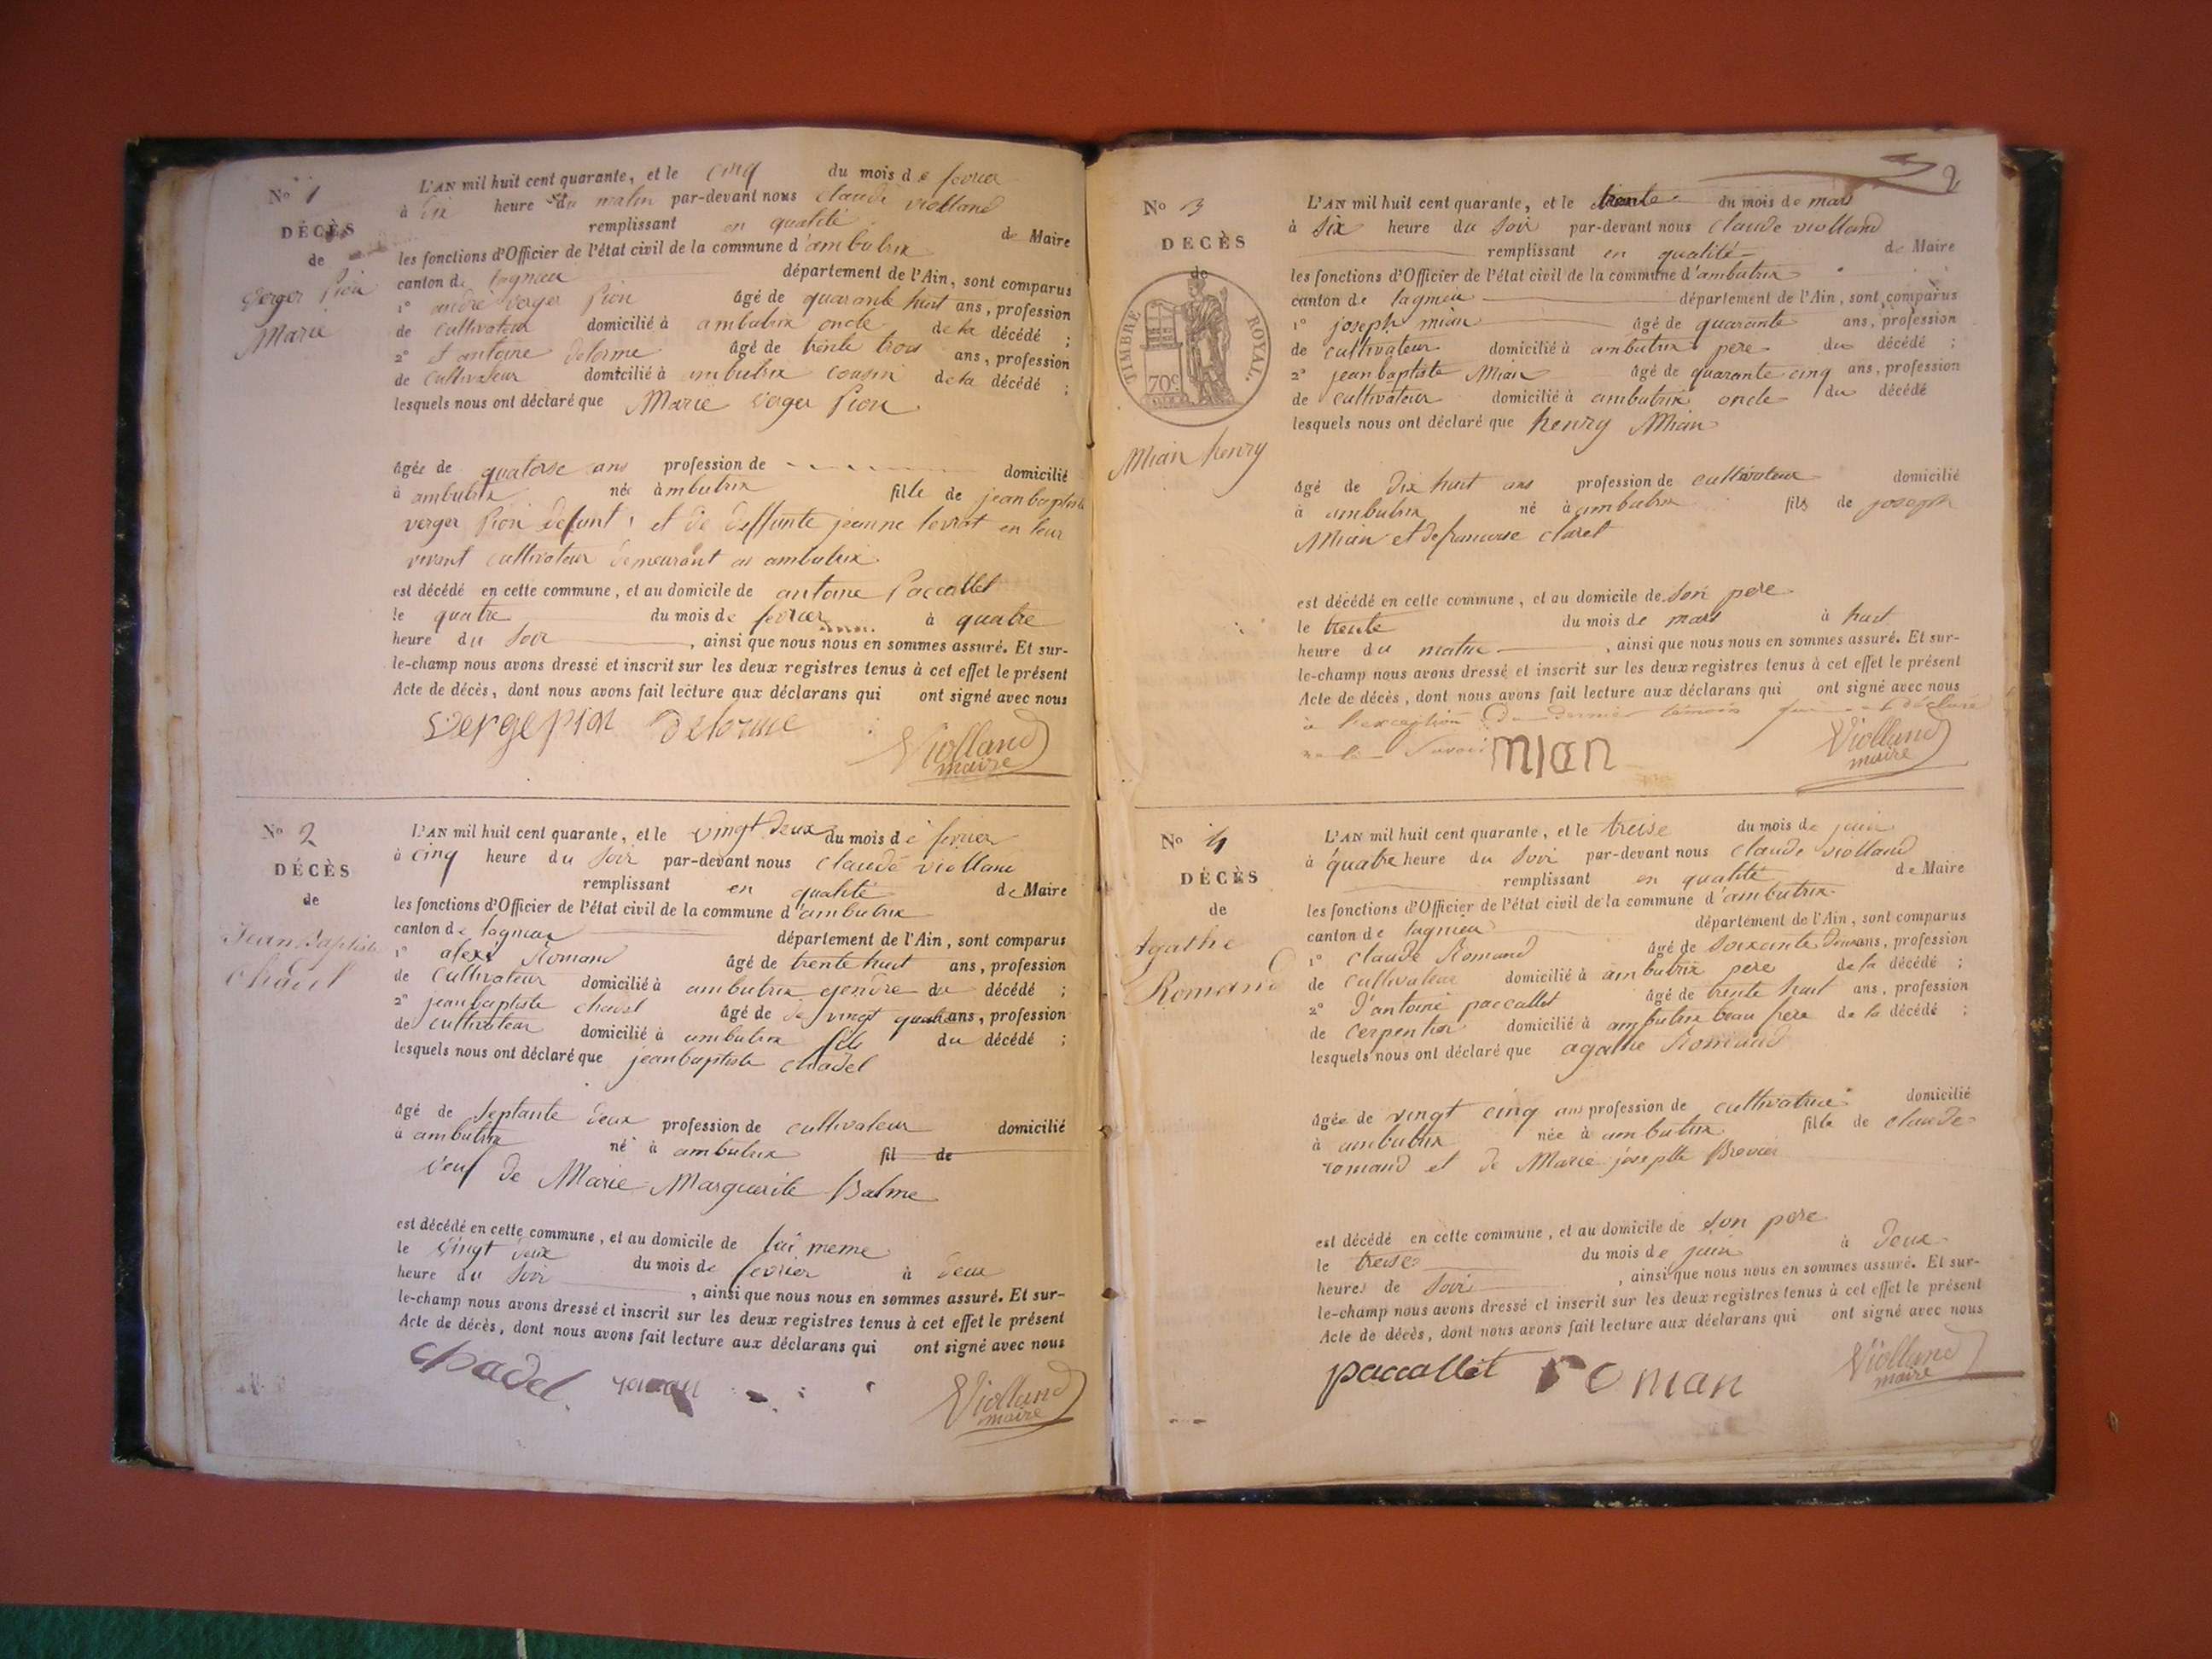 No 1
DÉCÈS
de
Verger Pion
Marie
L'AN mil huit cent quarante, et le cinq du mois de fevrier
à dix heure du matin par-devant nous claude violland
remplissant en qualité de Maire
les fonctions d'Officier de l'état civil de la commune d'ambutrix
canton de lagnieu département de l'Ain, sont comparus
1° andré verger pion âgé de quarante huit ans, profession
de cultivateur domicilié à ambutrix oncle de la décédé ;
2° antoine delorme âgé de trente trois ans, profession
de cultivateur domicilié à ambutrix cousin de la décédé ;
lesquels nous ont déclaré que Marie verger pion
âgée de quatorse ans profession de domicilié
à ambutrix née à ambutrix fille de jean baptiste
verger pion defunt et de deffunte jeanne levrat en leur
vivant cultivateur demeurant a ambutrix
est décédé en cette commune, et au domicile de antoine paccallet
le quatre du mois de fevrier à quatre
heure du soir , ainsi que nous nous en sommes assuré. Et sur-
le-champ nous avons dressé et inscrit sur les deux registres tenus à cet effet le présent
Acte de décès, dont nous avons fait lecture aux déclarans qui ont signé avec nous
vergepion delorme Violland
maire
No 2
DÉCÈS
de
Jean Baptiste
chadel
L'AN mil huit cent quarante, et le vingt deux du mois de fevrier
à cinq heure du soir par-devant nous claude violland
remplissant en qualité de Maire
les fonctions d'Officier de l'état civil de la commune d'ambutrix
canton de lagnieu département de l'Ain, sont comparus
1° alexi Romand âgé de trente huit ans, profession
de cultivateur domicilié à ambutrix gendre du décédé ;
2° jean baptiste chadel âgé de vingt quatre ans, profession
de cultivateur domicilié à ambutrix fils du décédé ;
lesquels nous ont déclaré que jean baptiste chadel
âgé de septante deux profession de cultivateur domicilié
à ambutrix né à ambutrix fil de
veuf de Marie Marguerite Balme
est décédé en cette commune, et au domicile de lui meme
le vingt deux du mois de fevrier à deux
heure du soir , ainsi que nous nous en sommes assuré. Et sur-
le-champ nous avons dressé et inscrit sur les deux registres tenus à cet effet le présent
Acte de décès, dont nous avons fait lecture aux déclarans qui ont signé avec nous
chadel roman Violland
maire
2
No 3
DÉCÈS
de
TIMBRE ROYAL.
70c
Mian henry
L'AN mil huit cent quarante, et le trente du mois de mars
à six heure du soir par-devant nous claude violland
remplissant en qualité de Maire
les fonctions d'Officier de l'état civil de la commune d'ambutrix
canton de lagnieu département de l'Ain, sont comparus
1° joseph mian âgé de quarante ans, profession
de cultivateur domicilié à ambutrix pere du décédé ;
2° jean baptiste Mian âgé de quarante cinq ans, profession
de cultivateur domicilié à ambutrix oncle du décédé
lesquels nous ont déclaré que henry Mian
âgé de dix huit ans profession de cultivateur domicilié
à ambutrix né à ambutrix fils de joseph
Mian et de francoise claret
est décédé en cette commune, et au domicile de son pere
le trente du mois de mars à huit
heure du matin , ainsi que nous nous en sommes assuré. Et sur-
le-champ nous avons dressé et inscrit sur les deux registres tenus à cet effet le présent
Acte de décès, dont nous avons fait lecture aux déclarans qui ont signé avec nous
à l'exception du dernier témoin a déclaré
ne le savoir mian Violland
maire
No 4
DÉCÈS
de
Agathe
Romand
L'AN mil huit cent quarante, et le treise du mois de juin
à quatre heure du soir par-devant nous claude violland
remplissant en qualité de Maire
les fonctions d'Officier de l'état civil de la commune d'ambutrix
canton de lagnieu département de l'Ain, sont comparus
1° claude Romand âgé de soixante deux ans, profession
de cultivateur domicilié à ambutrix pere de la décédé ;
2° antoine paccallet âgé de trente huit ans, profession
de cerpentier domicilié à ambutrix beau frere de la décédé ;
lesquels nous ont déclaré que agathe Romand
âgée de vingt cinq ans profession de cultivatrice domicilié
à ambutrix née à ambutrix fille de claude
romand et de Marie josephte Brevier
est décédé en cette commune, et au domicile de son pere
le treise du mois de juin à deux
heures de soir , ainsi que nous nous en sommes assuré. Et sur-
le-champ nous avons dressé et inscrit sur les deux registres tenus à cet effet le présent
Acte de décès, dont nous avons fait lecture aux déclarans qui ont signé avec nous
paccallet roman Violland
maire